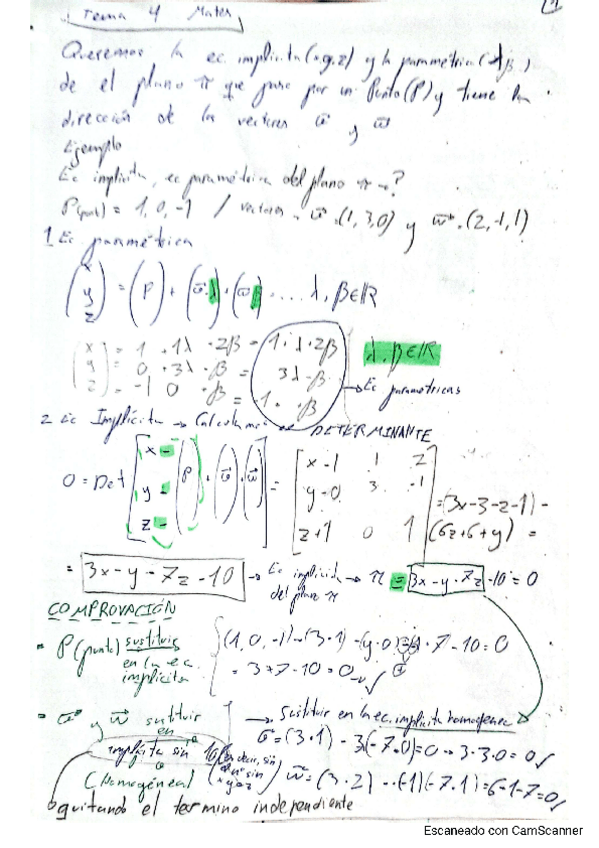 Tema 4 Mates
Queremos la ec. implícita (x,y,z) y la paramétrica (λβ)
de el plano π que pase por un Punto (P) y tiene la
dirección de los vectores u⃗ y w⃗
Ejemplo
Ec implícita, ec paramétrica del plano π → ?
P(punto) = 1, 0, -1 / vectores → u⃗ · (1, 3, 0) y w⃗ · (2, -1, 1)
1 Ec paramétrica
(x y z) = (P) + (u⃗·λ) · (w⃗ β) .... λ, β∈ℝ
x = 1 + 1λ · 2β = 1 · λ · 2β
y = 0 + 3λ · β = 3λ - β
z = -1 0 · β = -1 · β
λ, β∈ℝ
→ Ec paramétricas
2 Ec Implícita → Calculamos DETERMINANTE
0 = Det [x - y - z - (P) · (u⃗) · (w⃗)] = [x-1 1 2
y-0 3 -1
z+1 0 1] = (3x-3-z-1) -
(6z+6+y) =
= 3x-y-7z-10 → Ec implícita del plano π → π = 3x-y-7z-10=0
COMPROVACIÓN
- P(punto) sustituis en la ec. implícita
(1, 0, -1) → (3·1) - (y·0) · 7 - 10 = 0
= 3+7-10=0 → √
- u⃗ y w⃗ sustituir en
implícita sin 10 (es decir, sin
(Homogénea)
→ Sustituir en la ec. implícita homogénea
u⃗=(3·1) - 3(-7·0)=0 → 3·3·0=0√
w⃗=(3·2) -·(-1)(-7·1)=6-1-7=0√
quitando el termino independiente
Escaneado con CamScanner